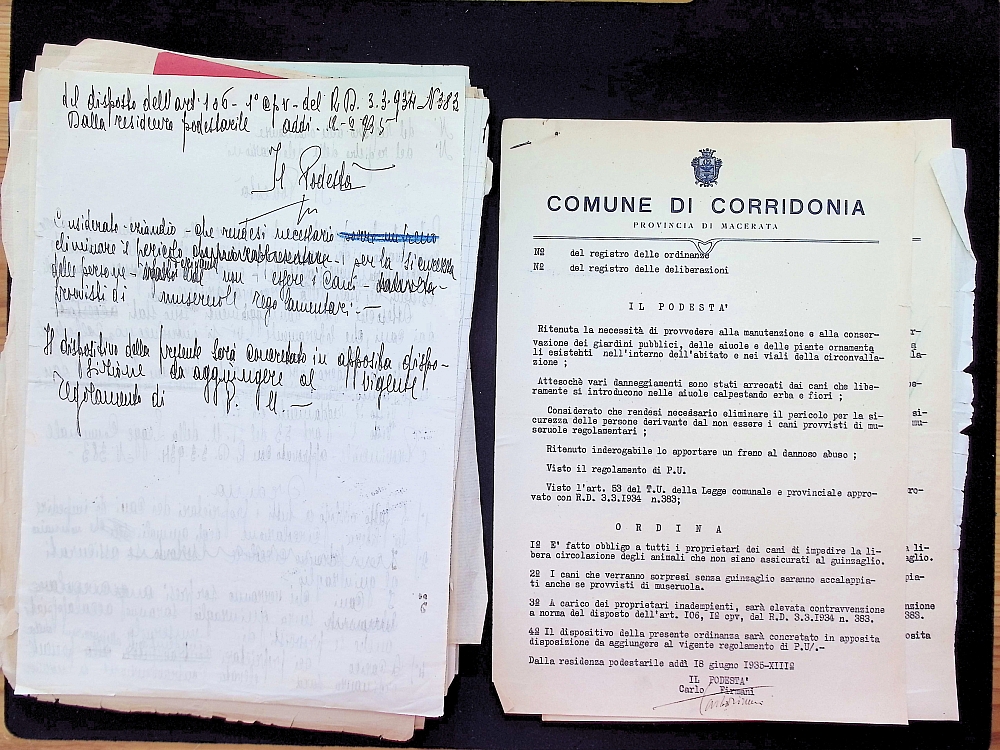 del disposto dell'art. 106 - 1° cpv - del R.D. 3.3.934 N 383
Dalla residenza podestarile addì
Il Podestà
Considerato - eziandio - che rendesi necessario
eliminare il pericolo per la sicurezza
delle persone - derivante dal non essere i cani
provvisti di museruole regolamentari. -
Il dispositivo della presente sarà concretato in apposita dispo-
sizione da aggiungere al vigente
regolamento di P. U. -
COMUNE DI CORRIDONIA
PROVINCIA DI MACERATA
Nº del registro delle ordinanze
Nº del registro delle deliberazioni
IL PODESTA'
Ritenuta la necessità di provvedere alla manutenzione e alla conser-
vazione dei giardini pubblici, delle aiuole e delle piante ornamenta
li esistehti nell'interno dell'abitato e nei viali della circonvalla-
zione ;
Attesochè vari danneggiamenti sono stati arrecati dai cani che libe-
ramente si introducono nelle aiuole calpestando erba e fiori ;
Considerato che rendesi necessario eliminare il pericolo per la si-
curezza delle persone derivante dal non essere i cani provvisti di mu-
seruole regolamentari ;
Ritenuto inderogabile lo apportare un freno al dannoso abuso ;
Visto il regolamento di P.U.
Visto l'art. 53 del T.U. della Legge comunale e provinciale appro-
vato con R.D. 3.3.I934 n.383;
O R D I N A
Iº E' fatto obbligo a tutti i proprietari dei cani di impedire la li-
bera circolazione degli animali che non siano assicurati al guinzaglio.
2º I cani che verranno sorpresi senza guinzaglio saranno accalappia-
ti anche se provvisti di museruola.
3º A carico dei proprietari inadempienti, sarà elevata contravvenzione
a norma del disposto dell'art. I06, Iº cpv, del R.D. 3.3.I934 n. 383.
4º Il dispositivo della presente ordinanza sarà concretato in apposita
disposizione da aggiungere al vigente regolamento di P.U/.-
Dalla residenza podestarile addì I8 giugno I935-XIIIº
IL PODESTA'
Carlo Firmani